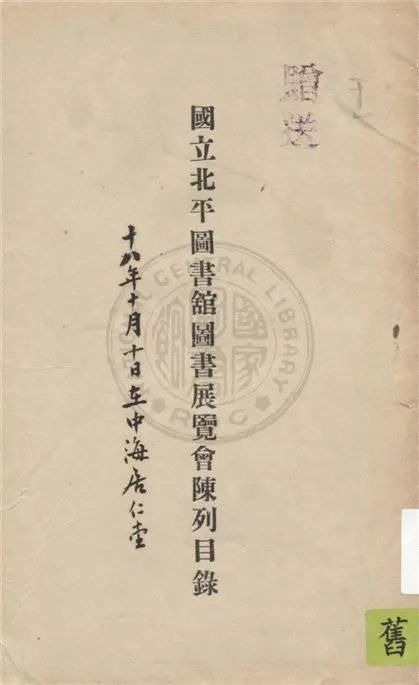 贈送
國立北平圖書館圖書展覽會陳列目錄
十八年十月十日在中海居仁堂
CENTRAL LIBRARY
舊